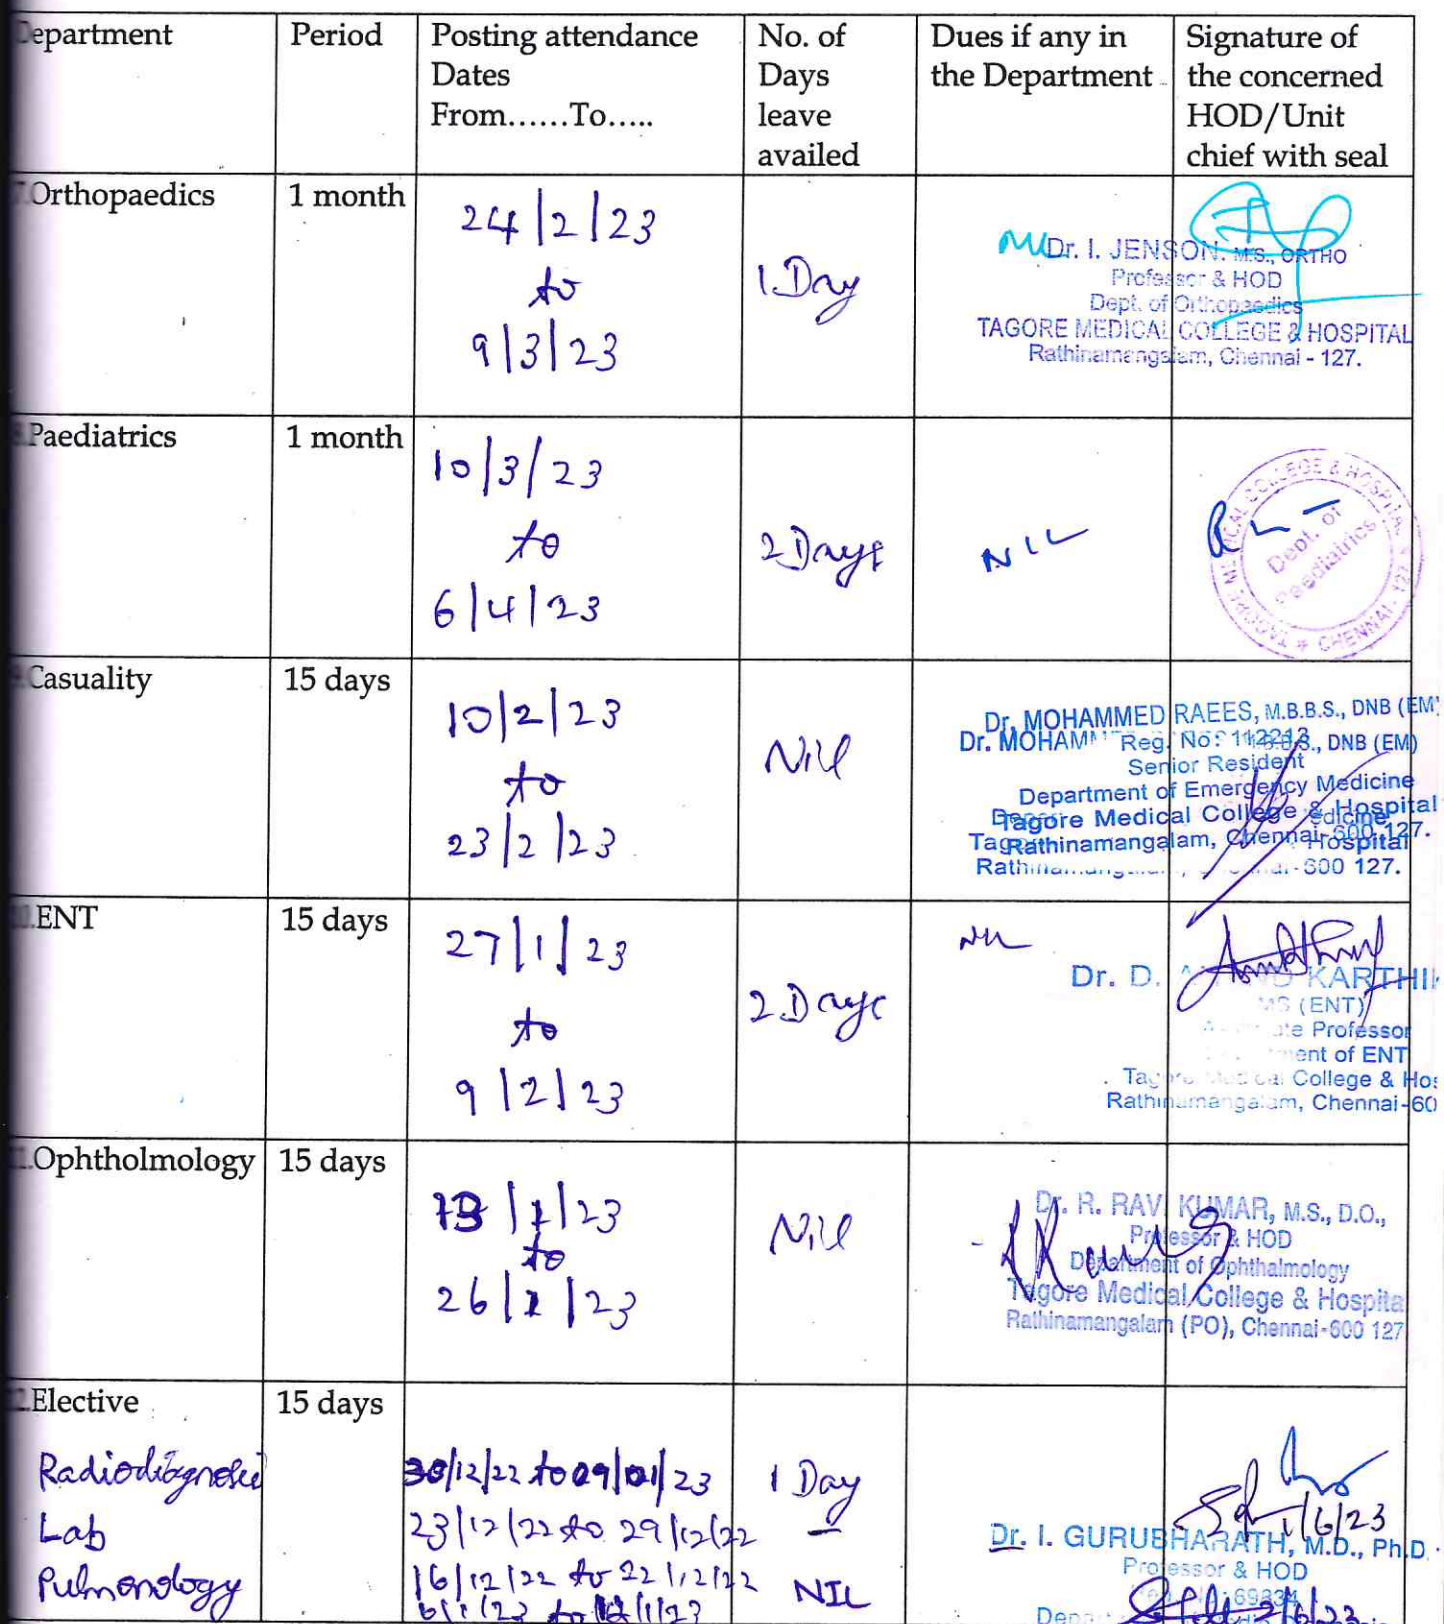 Department Period Posting attendance Dates From......To..... No. of Days leave availed Dues if any in the Department Signature of the concerned HOD/Unit chief with seal
7.Orthopaedics 1 month 24/2/23 to 9/3/23 1 Day Nil
Dr. I. JENSON. M.S., ORTHO
Professor & HOD
Dept. of Orthopaedics
TAGORE MEDICAL COLLEGE & HOSPITAL
Rathinamangalam, Chennai - 127.
8.Paediatrics 1 month 10/3/23 to 6/4/23 2 Days NIL
TAGORE MEDICAL COLLEGE & HOSPITAL
CHENNAI - 127
Dept. of
Paediatrics
9.Casuality 15 days 10/2/23 to 23/2/23 Nil
Dr. MOHAMMED RAEES, M.B.B.S., DNB (EM)
Dr. MOHAM Reg. No: 112213 B.S., DNB (EM)
Senior Resident
Department of Emergency Medicine
Tagore Medical College & Hospital
Rathinamangalam, Chennai-600 127.
Hospital
Rathin 600 127.
.ENT 15 days 27/1/23 to 9/2/23 2 Days Nil
Dr. D. KARTHI
MS (ENT)
Professor
of ENT
Tagore Medical College & Hos
Rathinamangalam, Chennai-60
.Ophtholmology 15 days 13/1/23 to 26/1/23 Nil
Dr. R. RAVI KUMAR, M.S., D.O.,
Professor & HOD
Department of Ophthalmology
Tagore Medical College & Hospita
Rathinamangalam (PO), Chennai-600 127
.Elective 15 days
Radiodiagnosis 30/12/22 to 09/01/23 1 Day
Lab 23/12/22 to 29/12/22 — 1/6/23
Dr. I. GURUBHARATH, M.D., Ph.D.
Professor & HOD
Pulmonology 16/12/22 to 22/12/22 NIL
6/1/23 to 12/1/23